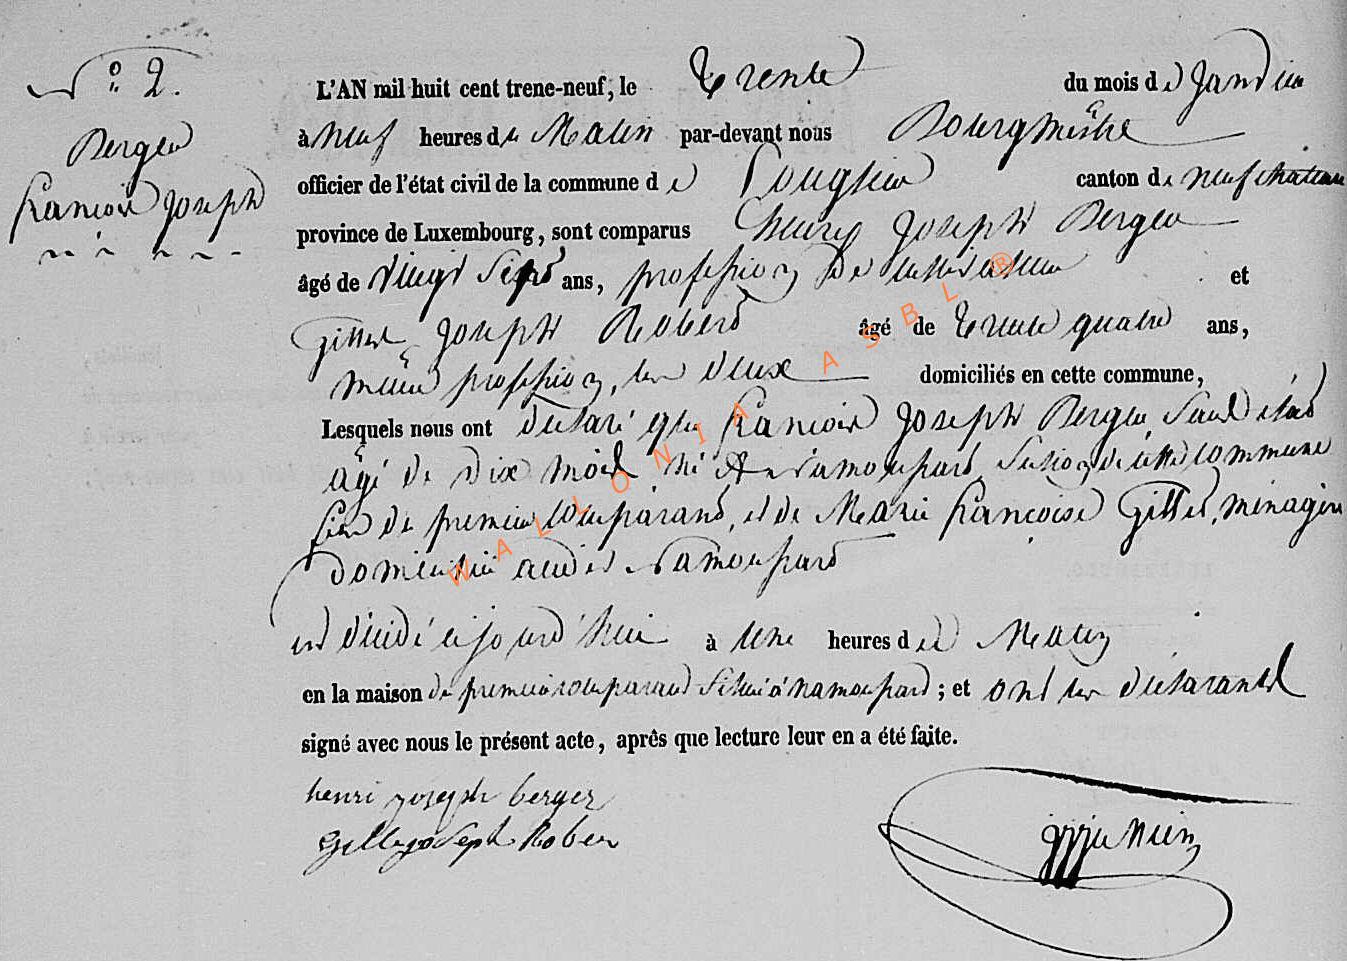 N° 2.
Berger
francois Joseph
L'AN mil huit cent trene-neuf, le trente du mois de Janvier
à neuf heures du Matin par-devant nous Bourgmestre
officier de l'état civil de la commune de Longlier canton de neufchateau
province de Luxembourg, sont comparus Henry Joseph Berger
âgé de vingt sept ans, profession de cultivateur et
Gilles Joseph Robert âgé de trente quatre ans,
même profession, les deux domiciliés en cette commune,
Lesquels nous ont déclaré que francois Joseph Berger, seul état
âgé de dix mois né à namoussart section de cette commune
fils de premier comparant, et de Marie françoise Gilles, ménagère
domiciliée audit namoussart
est décédé cejourd'hui à une heures du Matin
en la maison du premier comparant située à namoussart ; et ont les déclarants
signé avec nous le présent acte, après que lecture leur en a été faite.
henri joseph berger
gille joseph Rober
WALLONIA ASBL ®